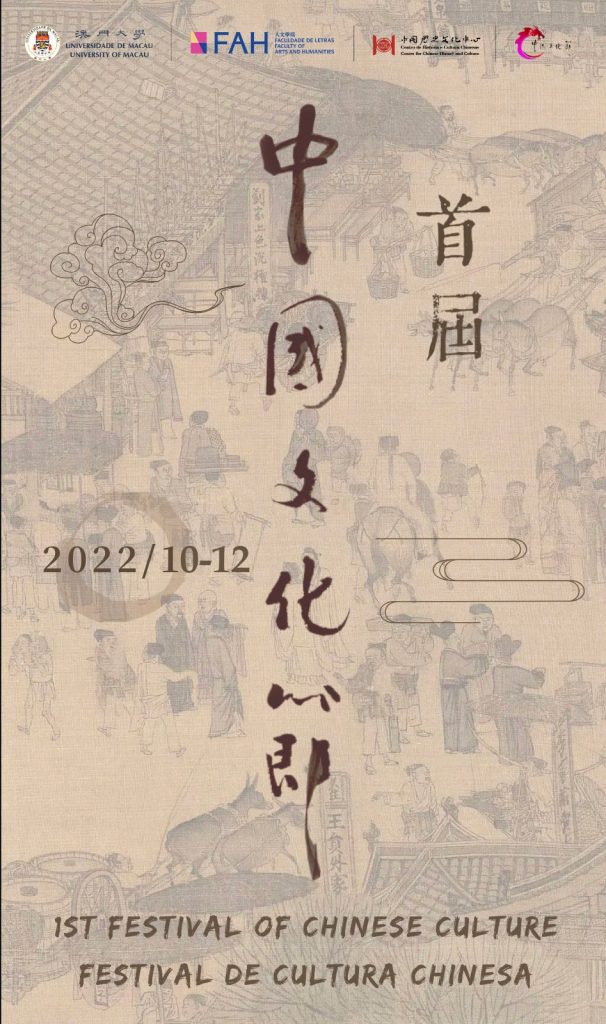 澳門大學
UNIVERSIDADE DE MACAU
UNIVERSITY OF MACAU
FAH
人文學院
FACULDADE DE LETRAS
FACULTY OF
ARTS AND HUMANITIES
中國歷史文化中心
Centro de História e Cultura Chinesa
Centre for Chinese History and Culture
首屆
中國文化節
劉家上色沉檀揀香
2022/10-12
王員外家
1ST FESTIVAL OF CHINESE CULTURE
FESTIVAL DE CULTURA CHINESA